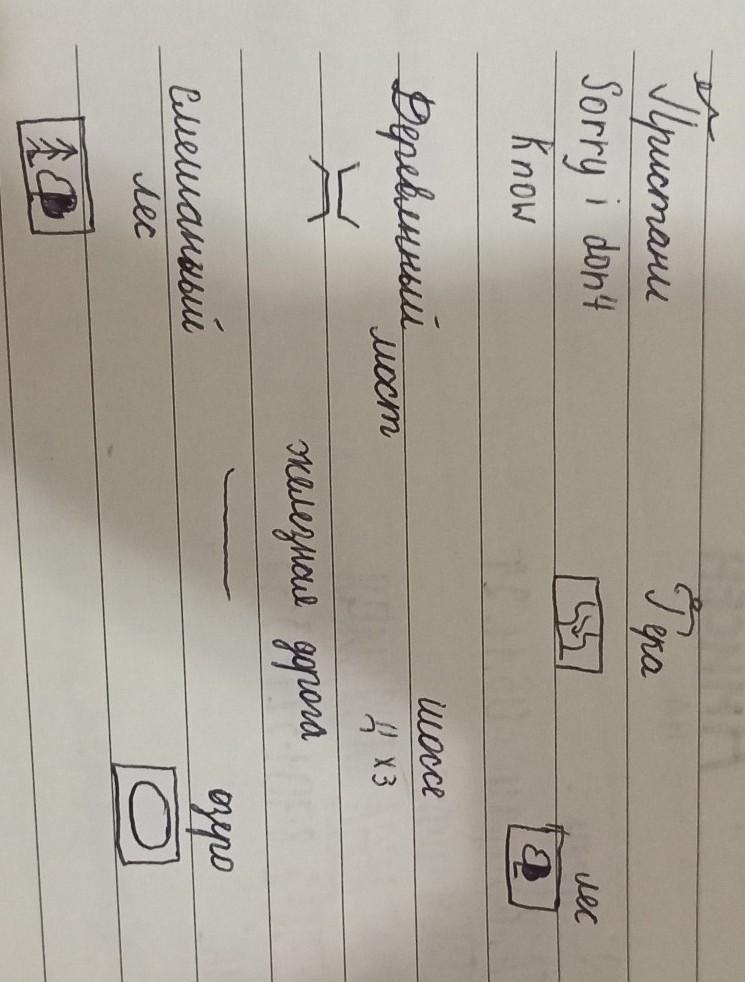 Пристани
Sorry i don't
Know
лес
Деревянный мост
шоссе
хз
железная дорога
Смешанный
лес
озеро